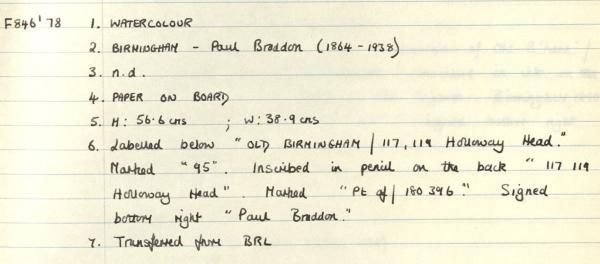 F846'78 1. WATERCOLOUR
2. BIRMINGHAM - Paul Braddon (1864-1938)
3. n.d.
4. PAPER ON BOARD
5. H: 56.6 cms ; W: 38.9 cms
6. Labelled below "OLD BIRMINGHAM / 117, 119 Holloway Head."
Marked "95". Inscribed in pencil on the back "117 119
Holloway Head". Marked "Pt of / 180396." Signed
bottom right "Paul Braddon."
7. Transferred from BRL